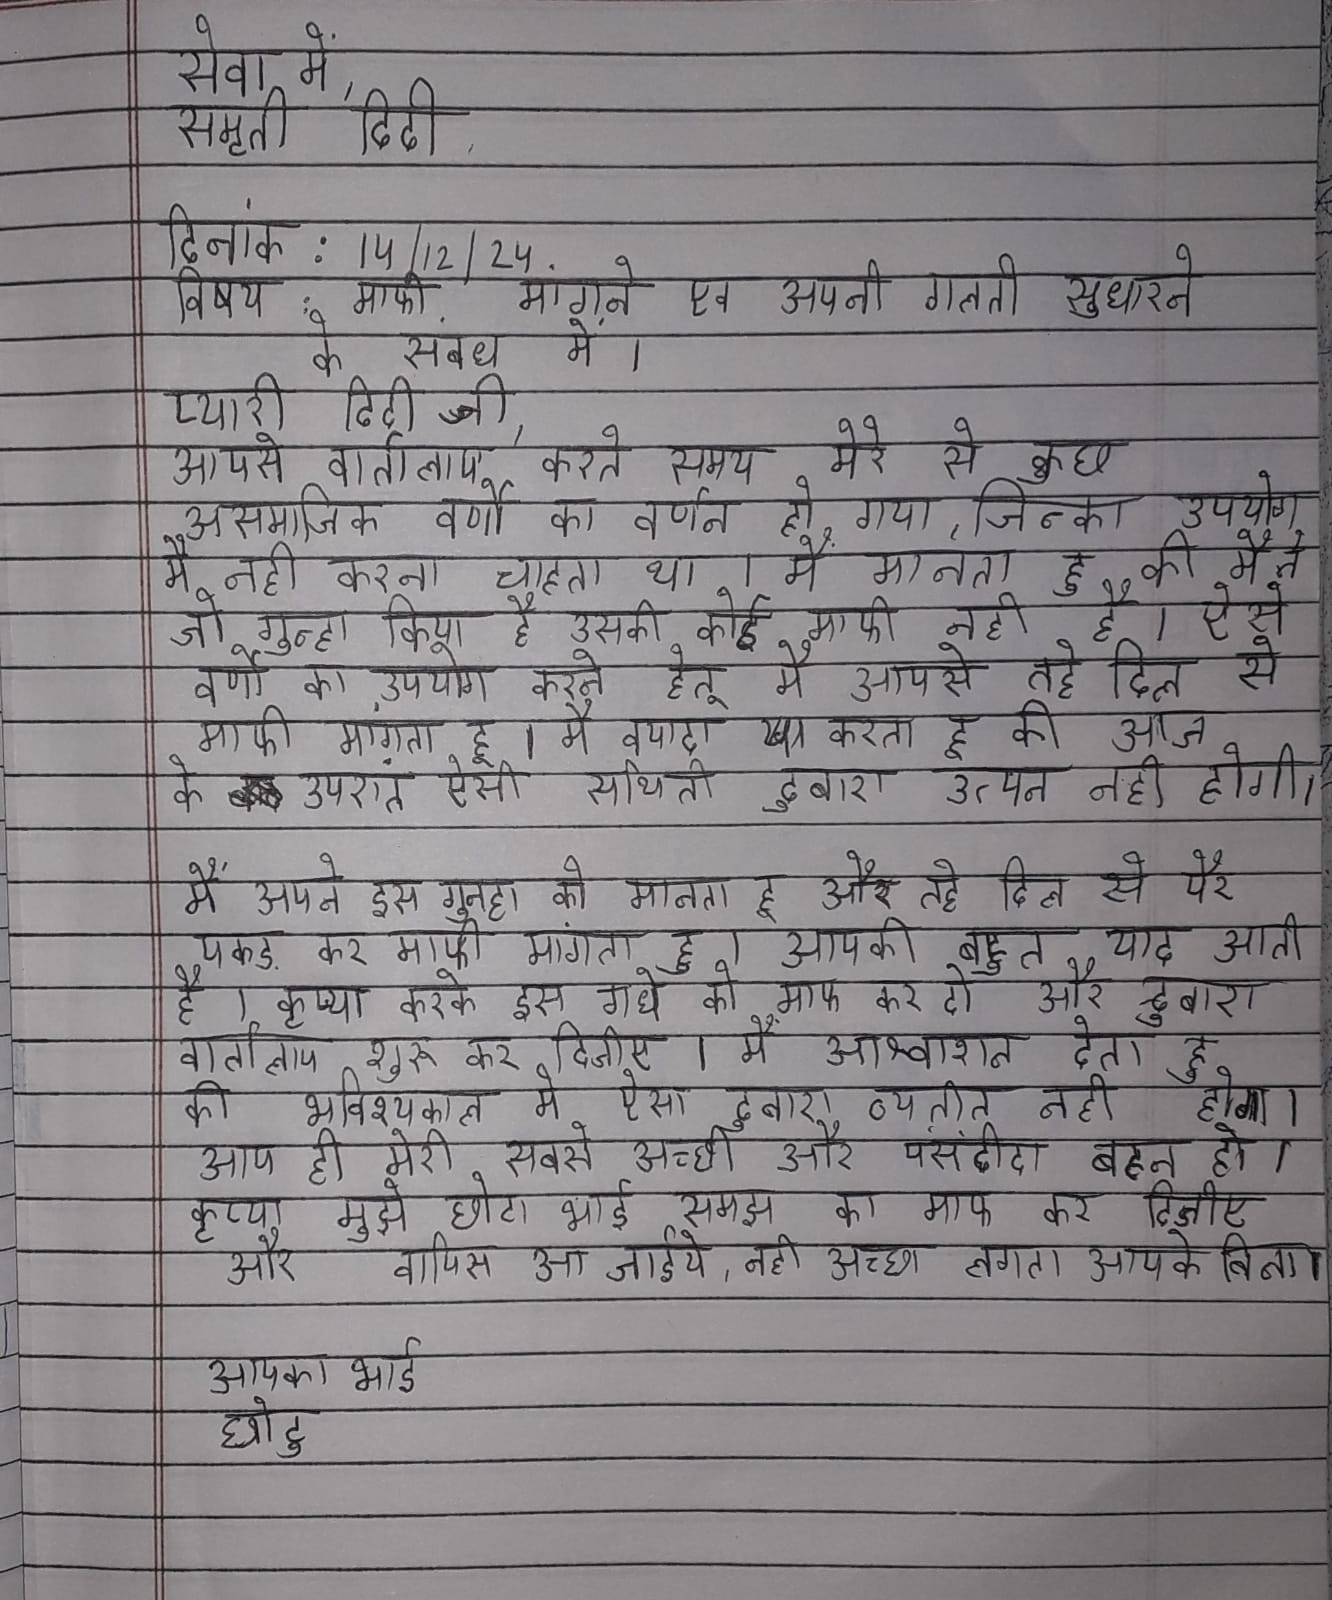 सेवा में,
समृती दिदी,
दिनांक : 14/12/24.
विषय : माफी मागने एव अपनी गलती सुधारने
के संबध में ।
प्यारी दिदी जी,
आपसे वार्तालाप करते समय मेरे से कुछ
असमाजिक वर्णो का वर्णन हो गया, जिन्का उपयोग
मैं नही करना चाहता था । मैं मानता हु की मैने
जो गुन्हा किया है उसकी कोई माफी नही है । ऐसे
वर्णो का उपयोग करने हेतू मै आपसे तहे दिल से
माफी मांगता हू । मै वयादा करता हू की आज
के उपरांत ऐसी सथिती दुबारा उत्पन नही होगी।
मैं अपने इस गुनहा को मानता हू और तहे दिल से पैर
पकड़ कर माफी मांगता हु । आपकी बहुत याद आती
है । कृप्या करके इस गधे को माफ कर दो और दुबारा
वार्तालाप शुरू कर दिजीए । मैं आश्वाशन देता हु
की भविश्यकाल मे ऐसा दुबारा व्यतीत नही होगा।
आप ही मेरी सबसे अच्छी और पसंदीदा बहन हो ।
कृप्या मुझे छोटा भाई समझ का माफ कर दिजीए
और वापिस आ जाईये, नही अच्छा लगता आपके बिना।
आपका भाई
छोटु